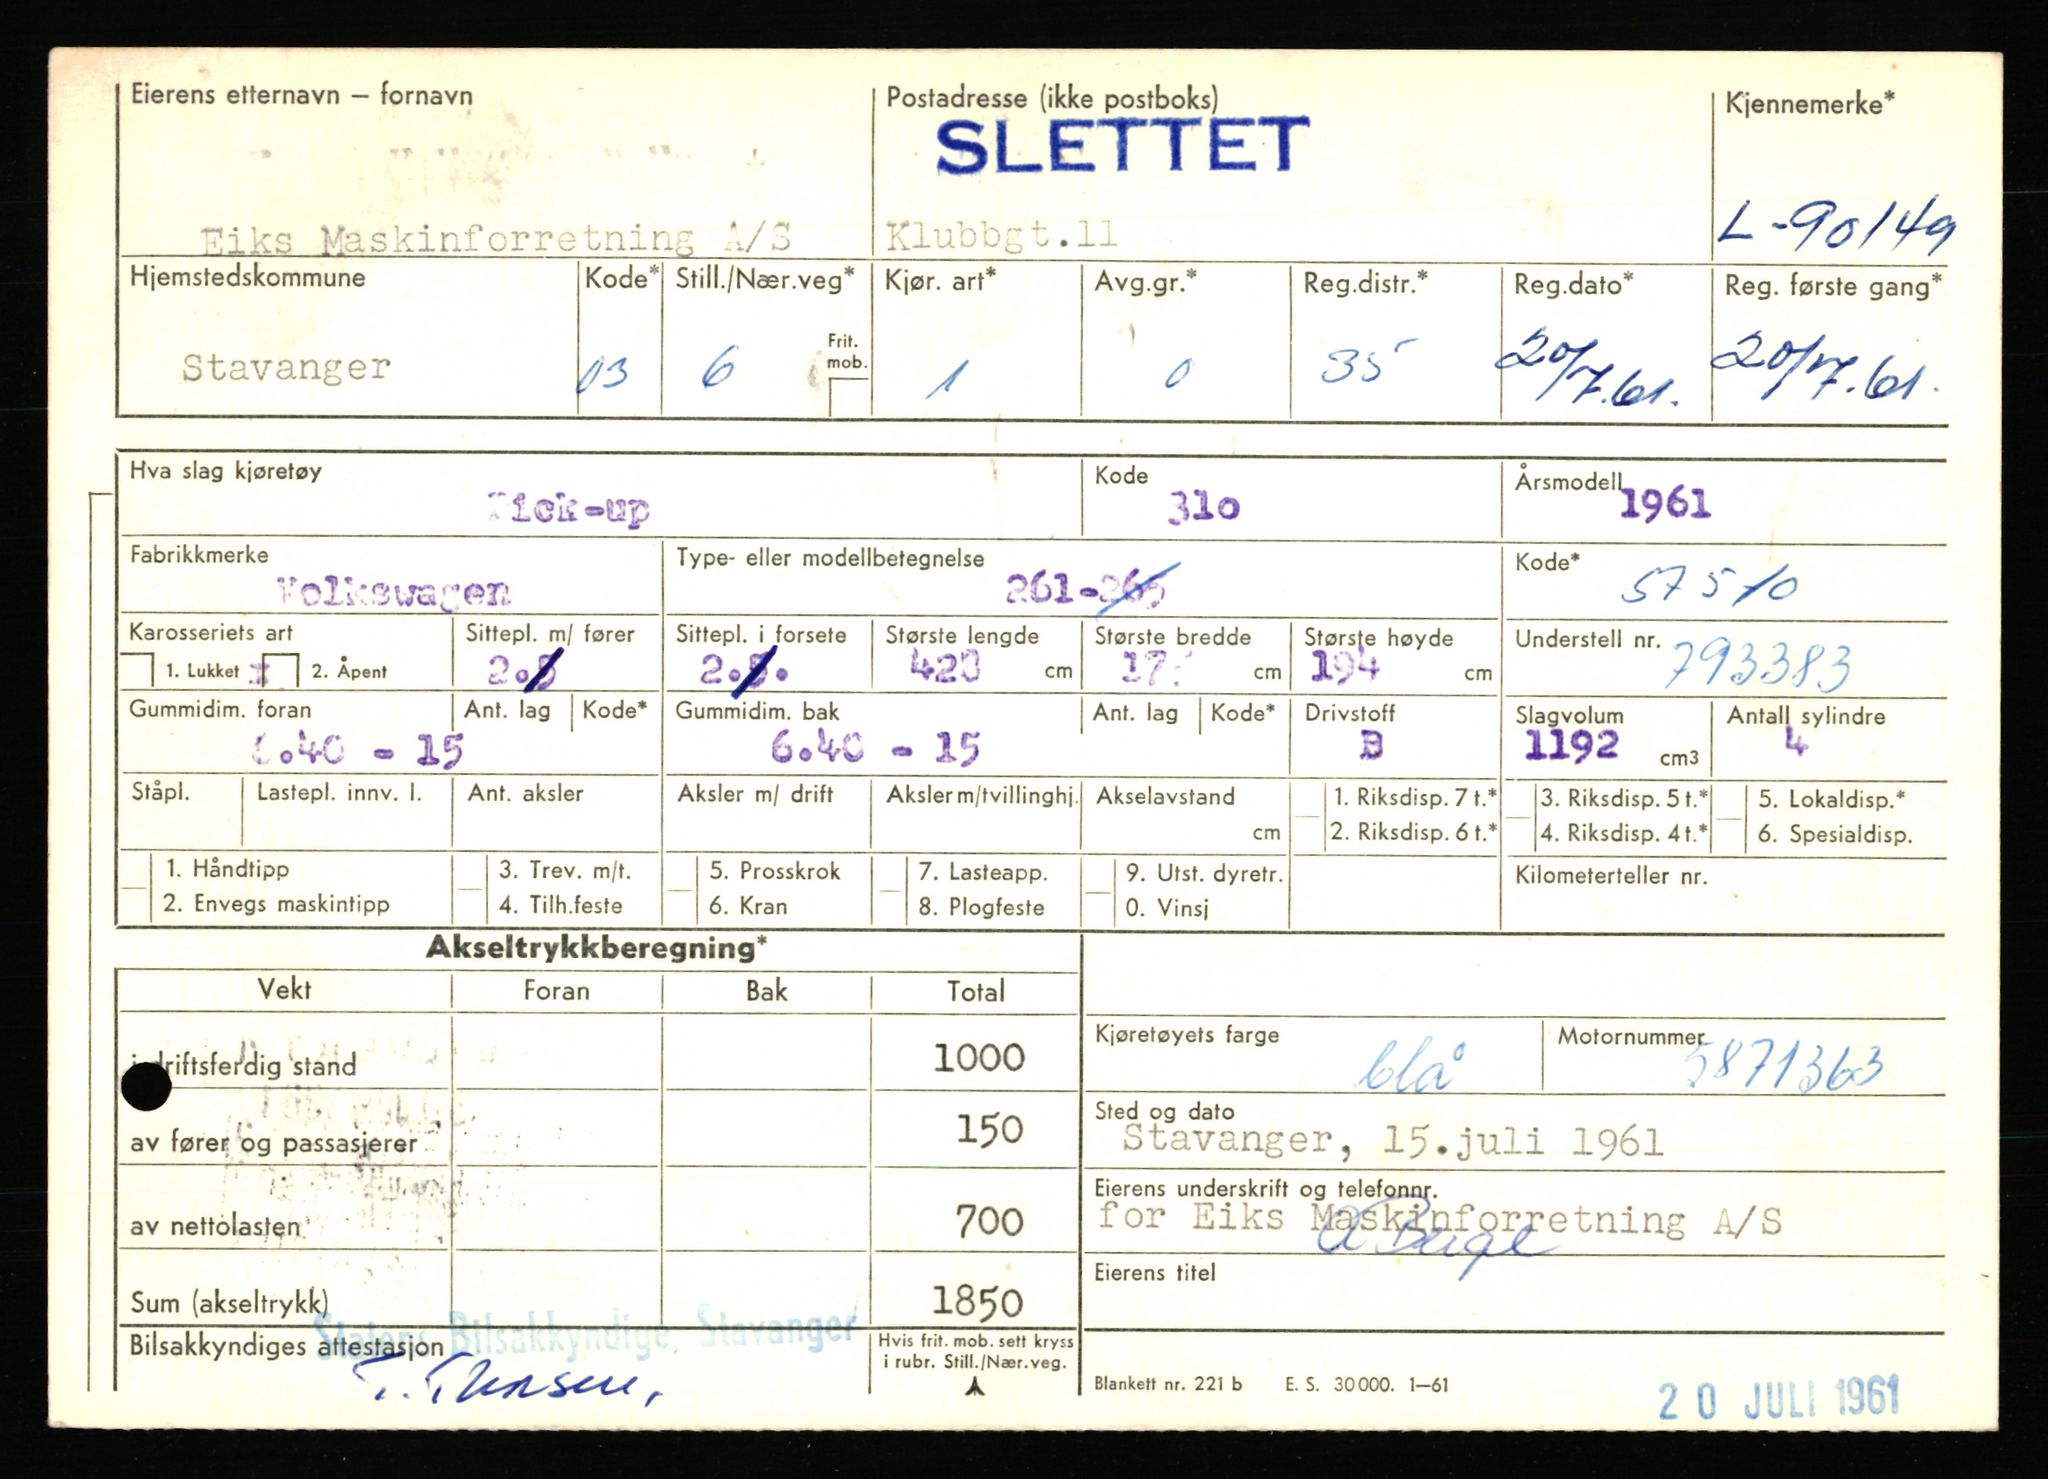 Eierens etternavn — fornavn Postadresse (ikke postboks) Kjennemerke*
SLETTET
Eiks Maskinforretning A/S Klubbgt.11 L-90149
Hjemstedskommune Kode* Still./Nær.veg* Kjør. art* Avg.gr.* Reg.distr.* Reg.dato* Reg. første gang*
Frit. mob.
Stavanger 03 6 1 0 35 20/7.61. 20/7.61.
Hva slag kjøretøy Kode Årsmodell
Pick-up 310 1961
Fabrikkmerke Type- eller modellbetegnelse Kode*
Volkswagen 261-265 57510
Karosseriets art Sittepl. m/ fører Sittepl. i forsete Største lengde Største bredde Største høyde Understell nr.
1. Lukket x 2. Åpent 2.3 2.3. 420 cm 17 cm 194 cm 793383
Gummidim. foran Ant. lag Kode* Gummidim. bak Ant. lag Kode* Drivstoff Slagvolum Antall sylindre
6.40 - 15 6.40 - 15 B 1192 cm3 4
Ståpl. Lastepl. innv. l. Ant. aksler Aksler m/ drift Aksler m/tvillinghj. Akselavstand cm 1. Riksdisp. 7 t.* 3. Riksdisp. 5 t.* 5. Lokaldisp.*
2. Riksdisp. 6 t.* 4. Riksdisp. 4 t.* 6. Spesialdisp.
1. Håndtipp 3. Trev. m/t. 5. Prosskrok 7. Lasteapp. 9. Utst. dyretr. Kilometerteller nr.
2. Envegs maskintipp 4. Tilh.feste 6. Kran 8. Plogfeste 0. Vinsj
Akseltrykkberegning*
Vekt Foran Bak Total
i driftsferdig stand 1000
av fører og passasjerer 150
av nettolasten 700
Sum (akseltrykk) 1850
Kjøretøyets farge Motornummer
blå 5871363
Sted og dato
Stavanger, 15.juli 1961
Eierens underskrift og telefonnr.
for Eiks Maskinforretning A/S
Eierens titel
Statens Bilsakkyndige, Stavanger
Bilsakkyndiges attestasjon Hvis frit. mob. sett kryss
i rubr. Still./Nær.veg.
Blankett nr. 221 b E. S. 30 000. 1—61
20 JULI 1961